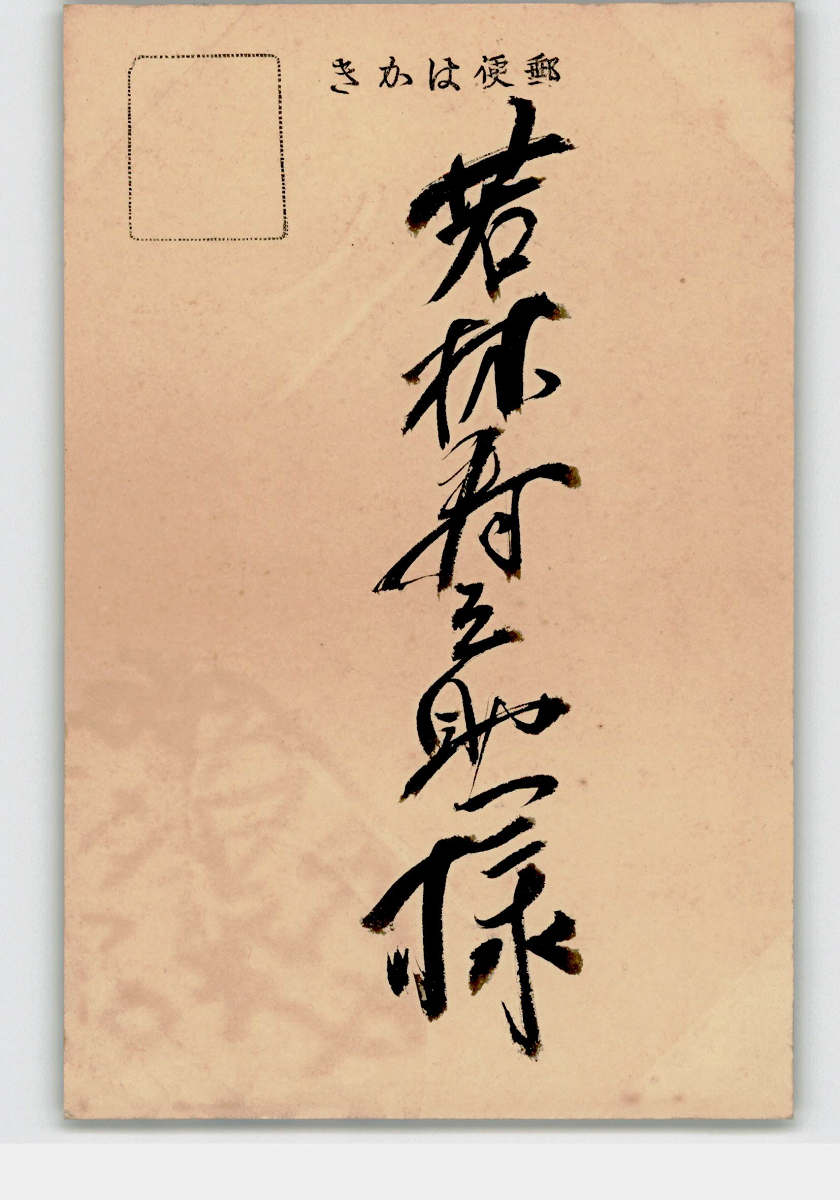 郵便はかき
若林寿之助様